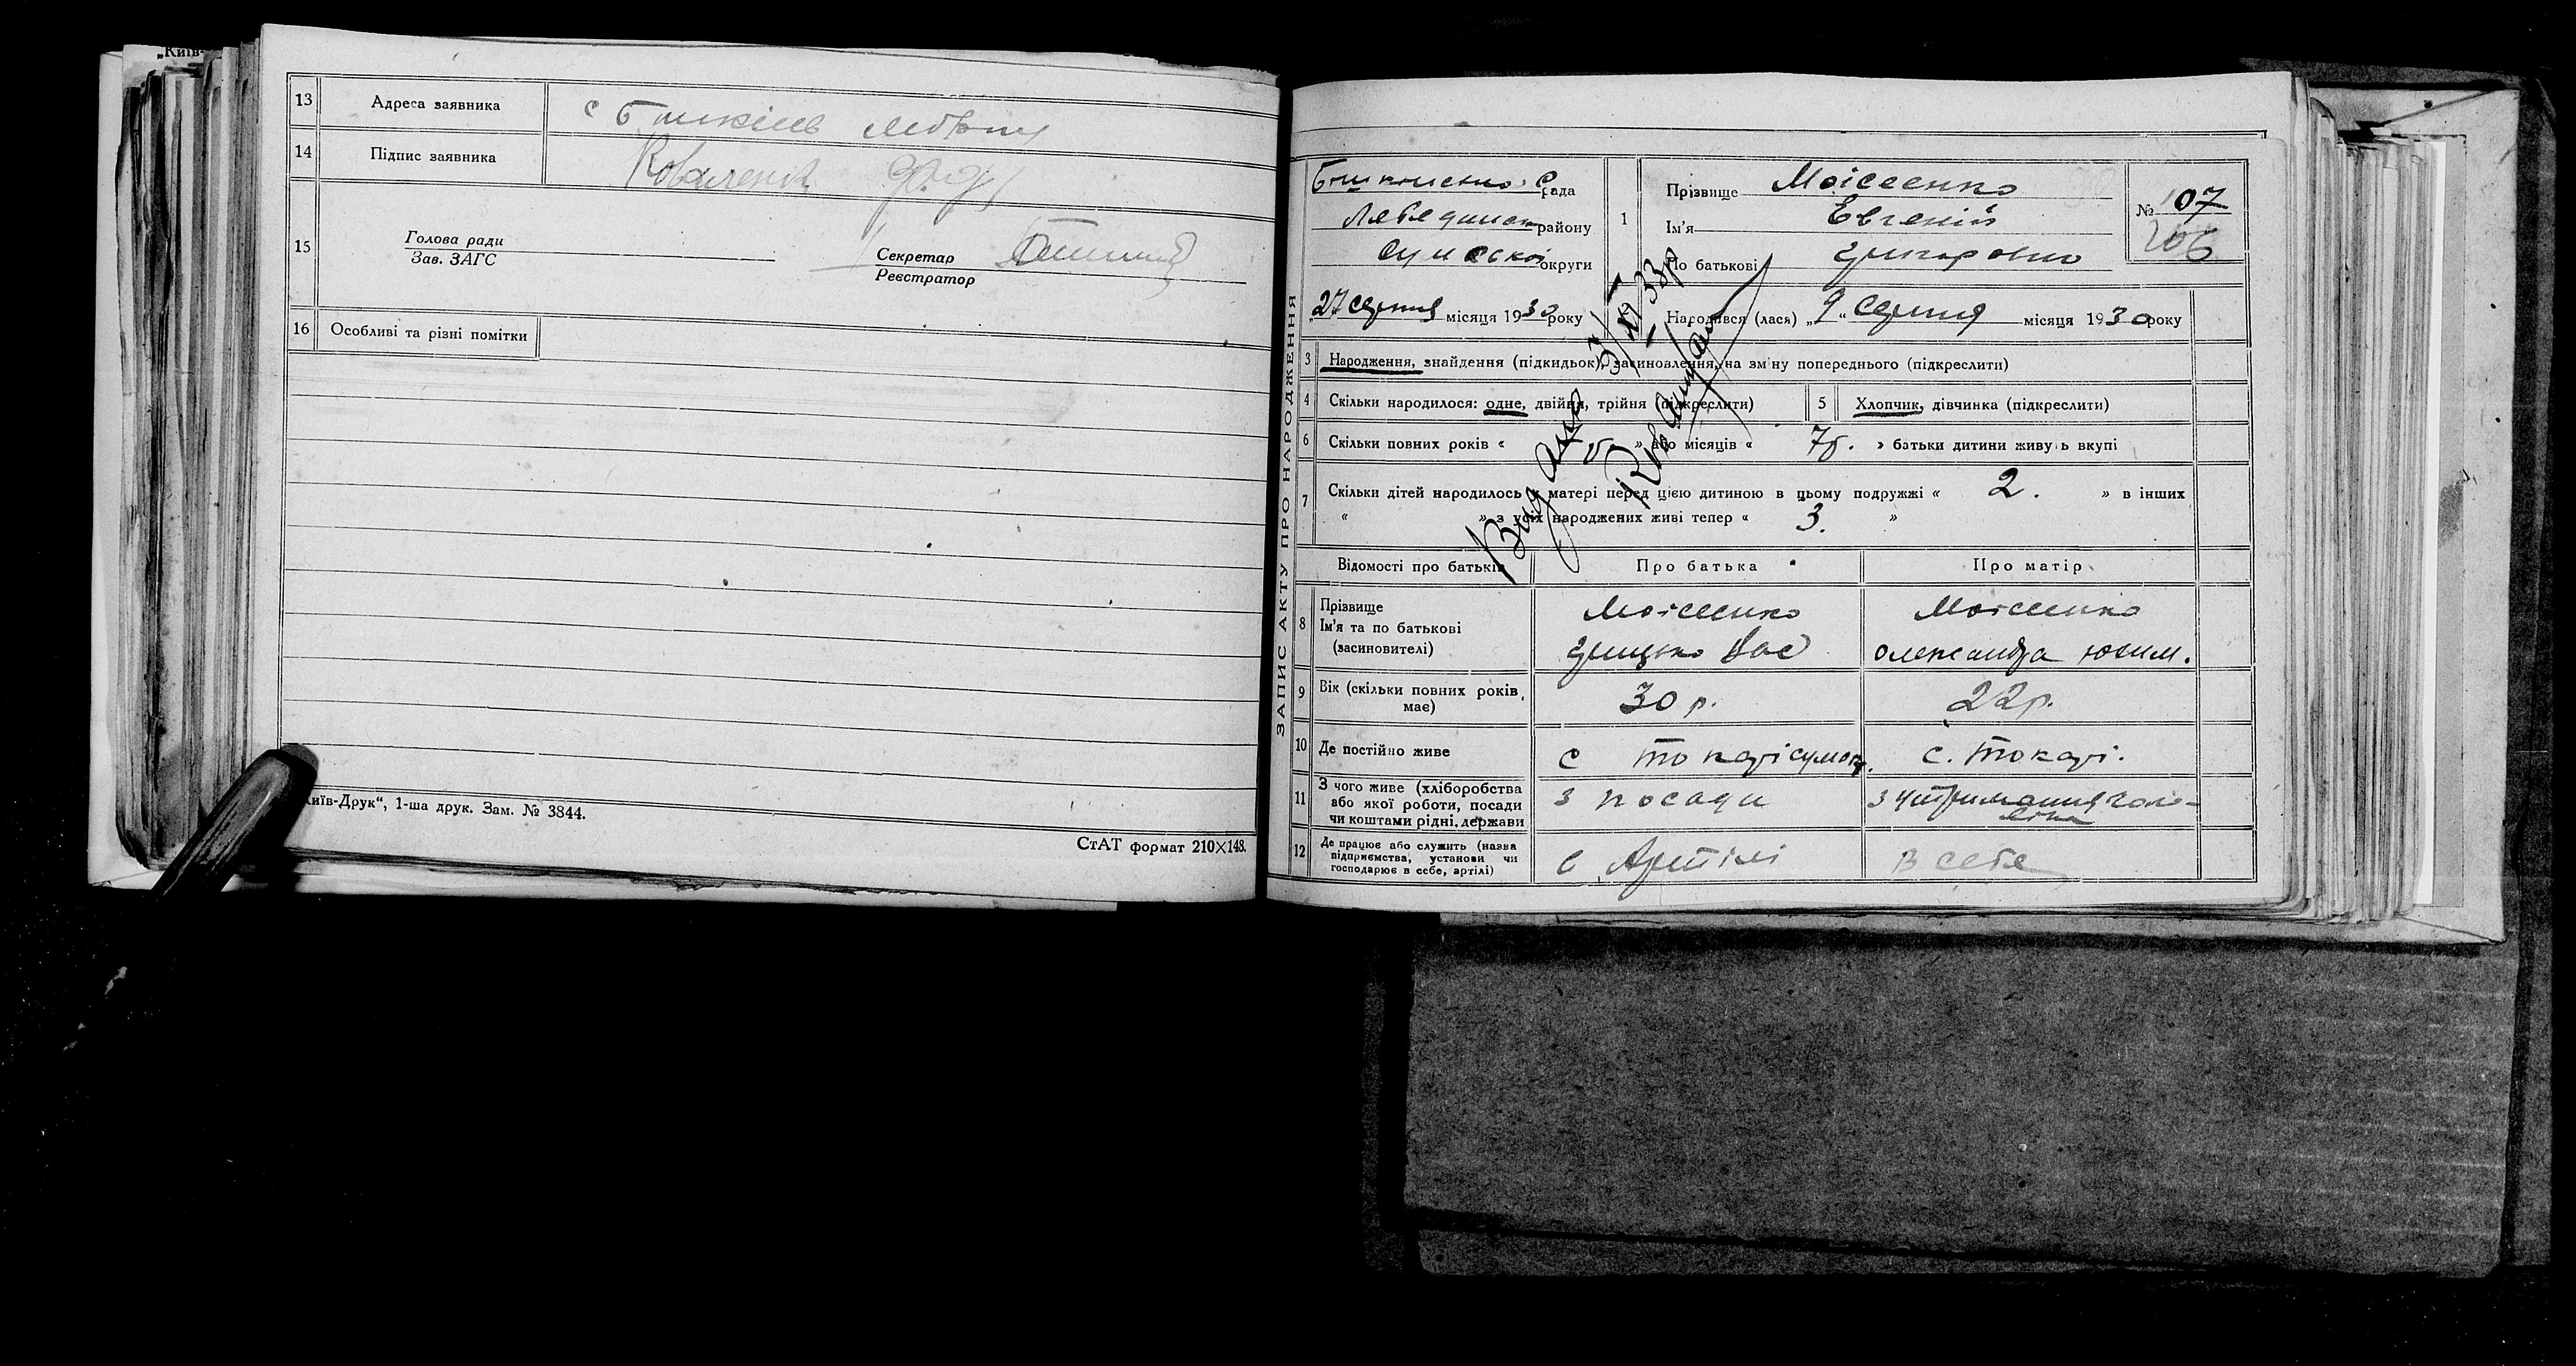 „Київ-
13 Адреса заявника с Бишкінь
14 Підпис заявника Коваленк
15 Голова ради
Зав. ЗАГС
Секретар
Реєстратор
16 Особливі та різні помітки
Київ-Друк“, 1-ша друк. Зам. № 3844.
СтАТ формат 210×148.
ЗАПИС АКТУ ПРО НАРОДЖЕННЯ
С рада
Лебединськ району
Сумської округи
„27 серпня місяця 1930 року
1 Прізвище Моісеенко
Ім'я Евгеній
По батькові
№ 107
106
Народився (лася) „9“ серпня місяця 1930 року
3 Народження, знайдення (підкидьок), засиновлення, на зм'ну попереднього (підкреслити)
4 Скільки народилося: одне, двійня, трійня (підкреслити) 5 Хлопчик, дівчинка (підкреслити)
6 Скільки повних років « » або місяців « » батьки дитини живуть вкупі
7 Скільки дітей народилось у матері перед цією дитиною в цьому подружжі « 2. » в інших
« » з усіх народжених живі тепер « 3. »
Видано 3/ 1933р
Відомості про батьків Про батька Про матір
8 Прізвище Моісеенко Моісеенко
Ім'я та по батькові
(засиновителі) Грицько Вас Олександра Юхим.
9 Вік (скільки повних років, має) 30 р. 22 р.
10 Де постійно живе с Токарі с. Токарі.
11 З чого живе (хліборобства
або якої роботи, посади
чи коштами рідні, держави з посади з утримання чоло-
віка
12 Де працює або служить (назва
підприємства, установи чи
господарює в себе, артілі) в Артілі в себе